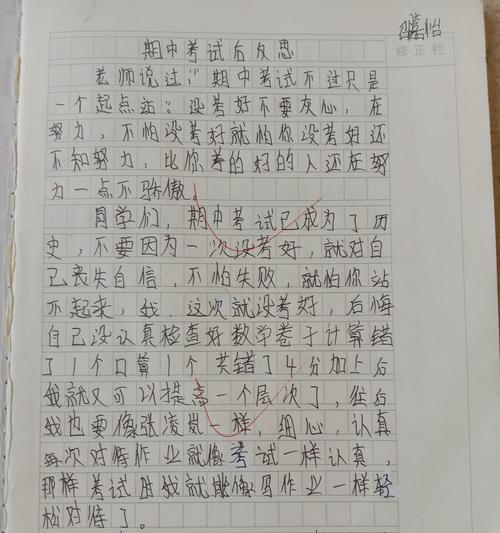 怡
修正栏
期中考试后反思
老师说过:"期中考试不过只是
一个起点站"。没考好不要灰心,在
努力,不怕没考好就怕你没考好还
不知努力,比你考的好的人还在努
力一点不骄傲。
同学们,期中考试已成为了历
史,不要因为一次没考好,就对自
己丧失自信,不怕失败,就怕你站
不起来,我,这次就没考好,后悔
自己没认真检查好数学卷子计算错
了1个口算1个共错了4分加上后
我就又可以提高一个层次了,往后
我也要像张凌岚一样,细心,认真
每次对待作业就像考试一样认真,
那样考试时我就能像写作业一样轻
松对待了。